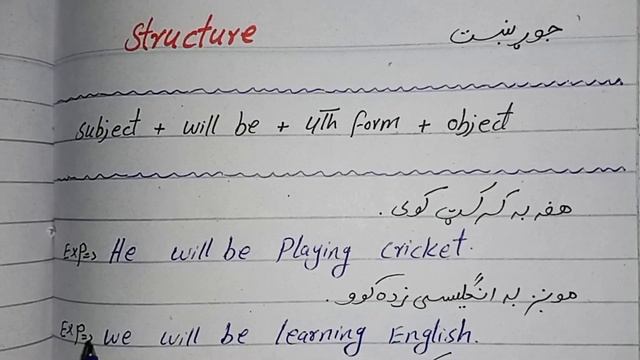 Structure جوړښت
subject + will be + 4th form + object
هغه به کرکټ کوی.
Exp=> He will be Playing cricket.
مونږ به انګلیسی زده کوو.
Exp=> we will be learning English.